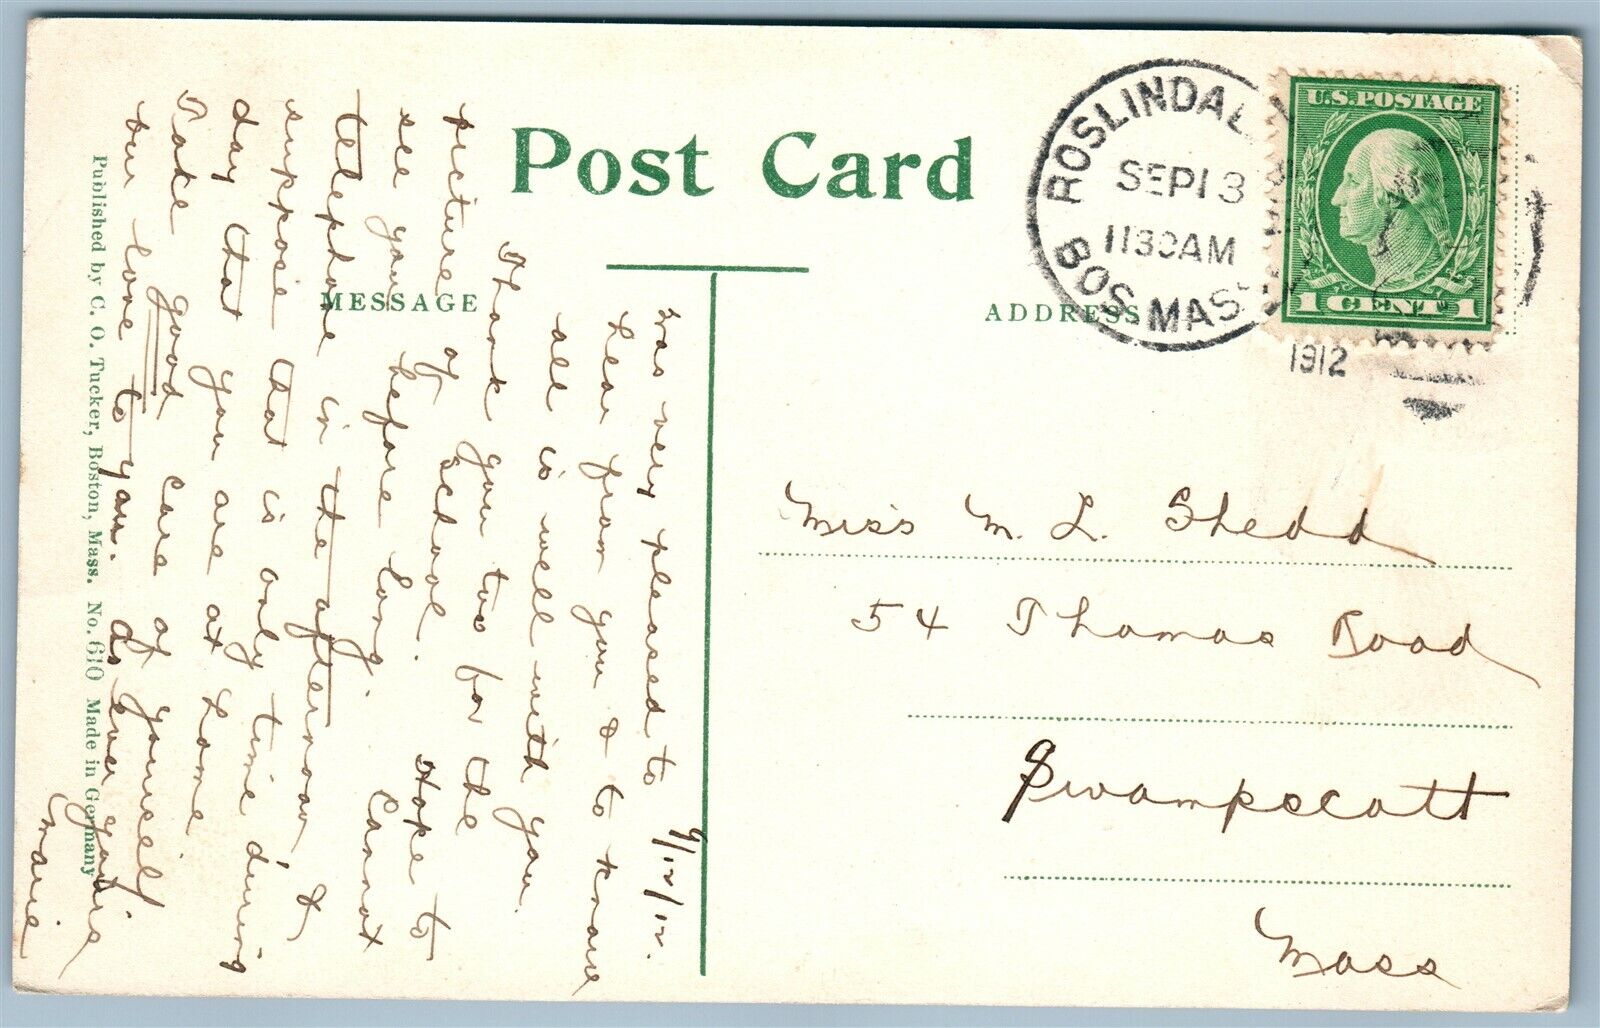 Post Card
MESSAGE
ADDRESS
ROSLINDALE
SEP 13
1130AM
BOS. MASS.
1912
U.S. POSTAGE
1 CENT 1
Miss M. L. Shedd
54 Thomas Road
Swampscott
Mass
9/12/12.
Was very pleased to
hear from you & to know
all is well with you.
Thank you too for the
picture of school. Hope to
see you before long. Cannot
telephone in the afternoon &
suppose that is only time during
day that you are at home
Take good care of yourself
Our love to you. As ever yours
Marie
Published by C. O. Tucker, Boston, Mass. No. 610 Made in Germany